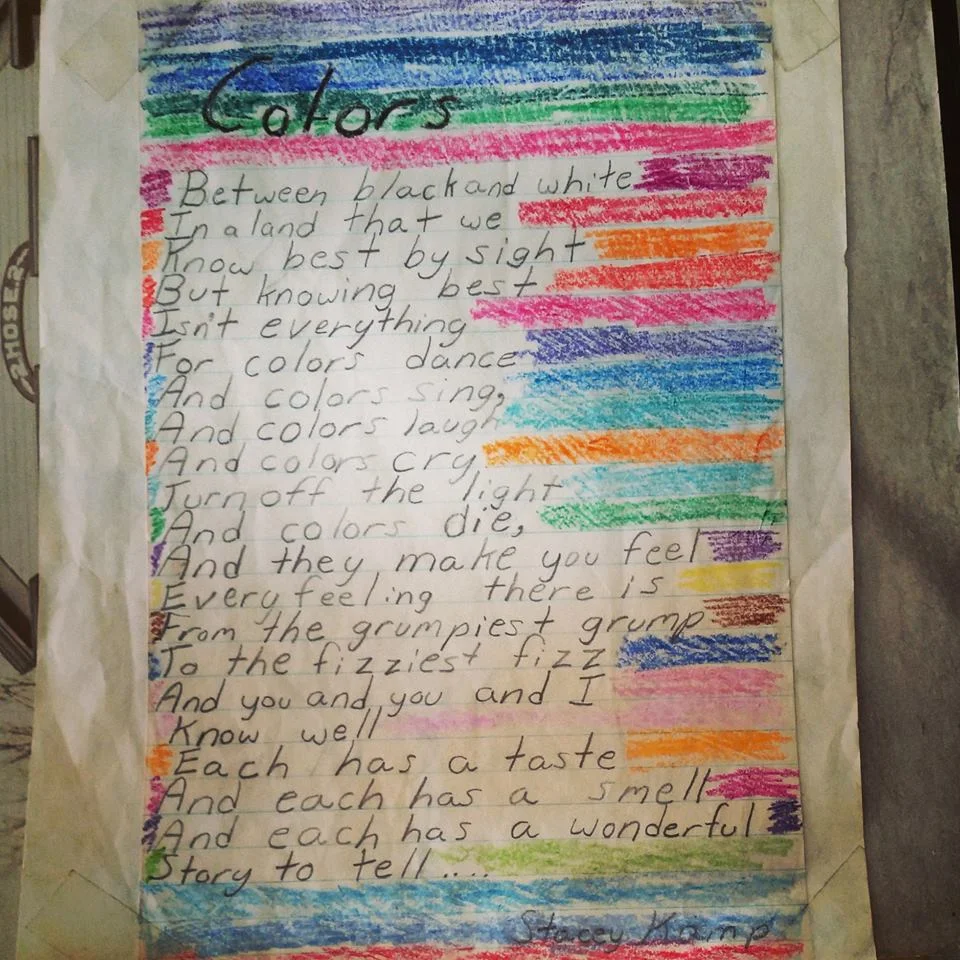 Colors
Between black and white
In a land that we
Know best by sight
But knowing best
Isn't everything
For colors dance
And colors sing,
And colors laugh
And colors cry,
Turn off the light
And colors die,
And they make you feel
Every feeling there is
From the grumpiest grump
To the fizziest fizz
And you and you and I
Know well
Each has a taste
And each has a smell
And each has a wonderful
Story to tell....
Stacey Kamp